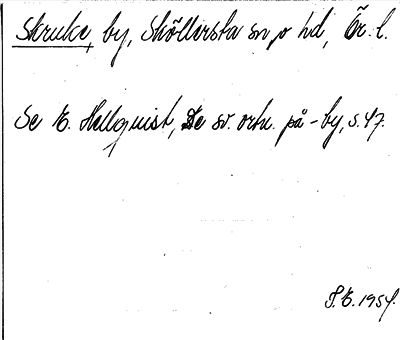 Skruke, by, Sköllersta sn o hd, Ör. l.
Se E. Hellquist, De sv. ortn. på -by, s. 47.
T.E. 1954.